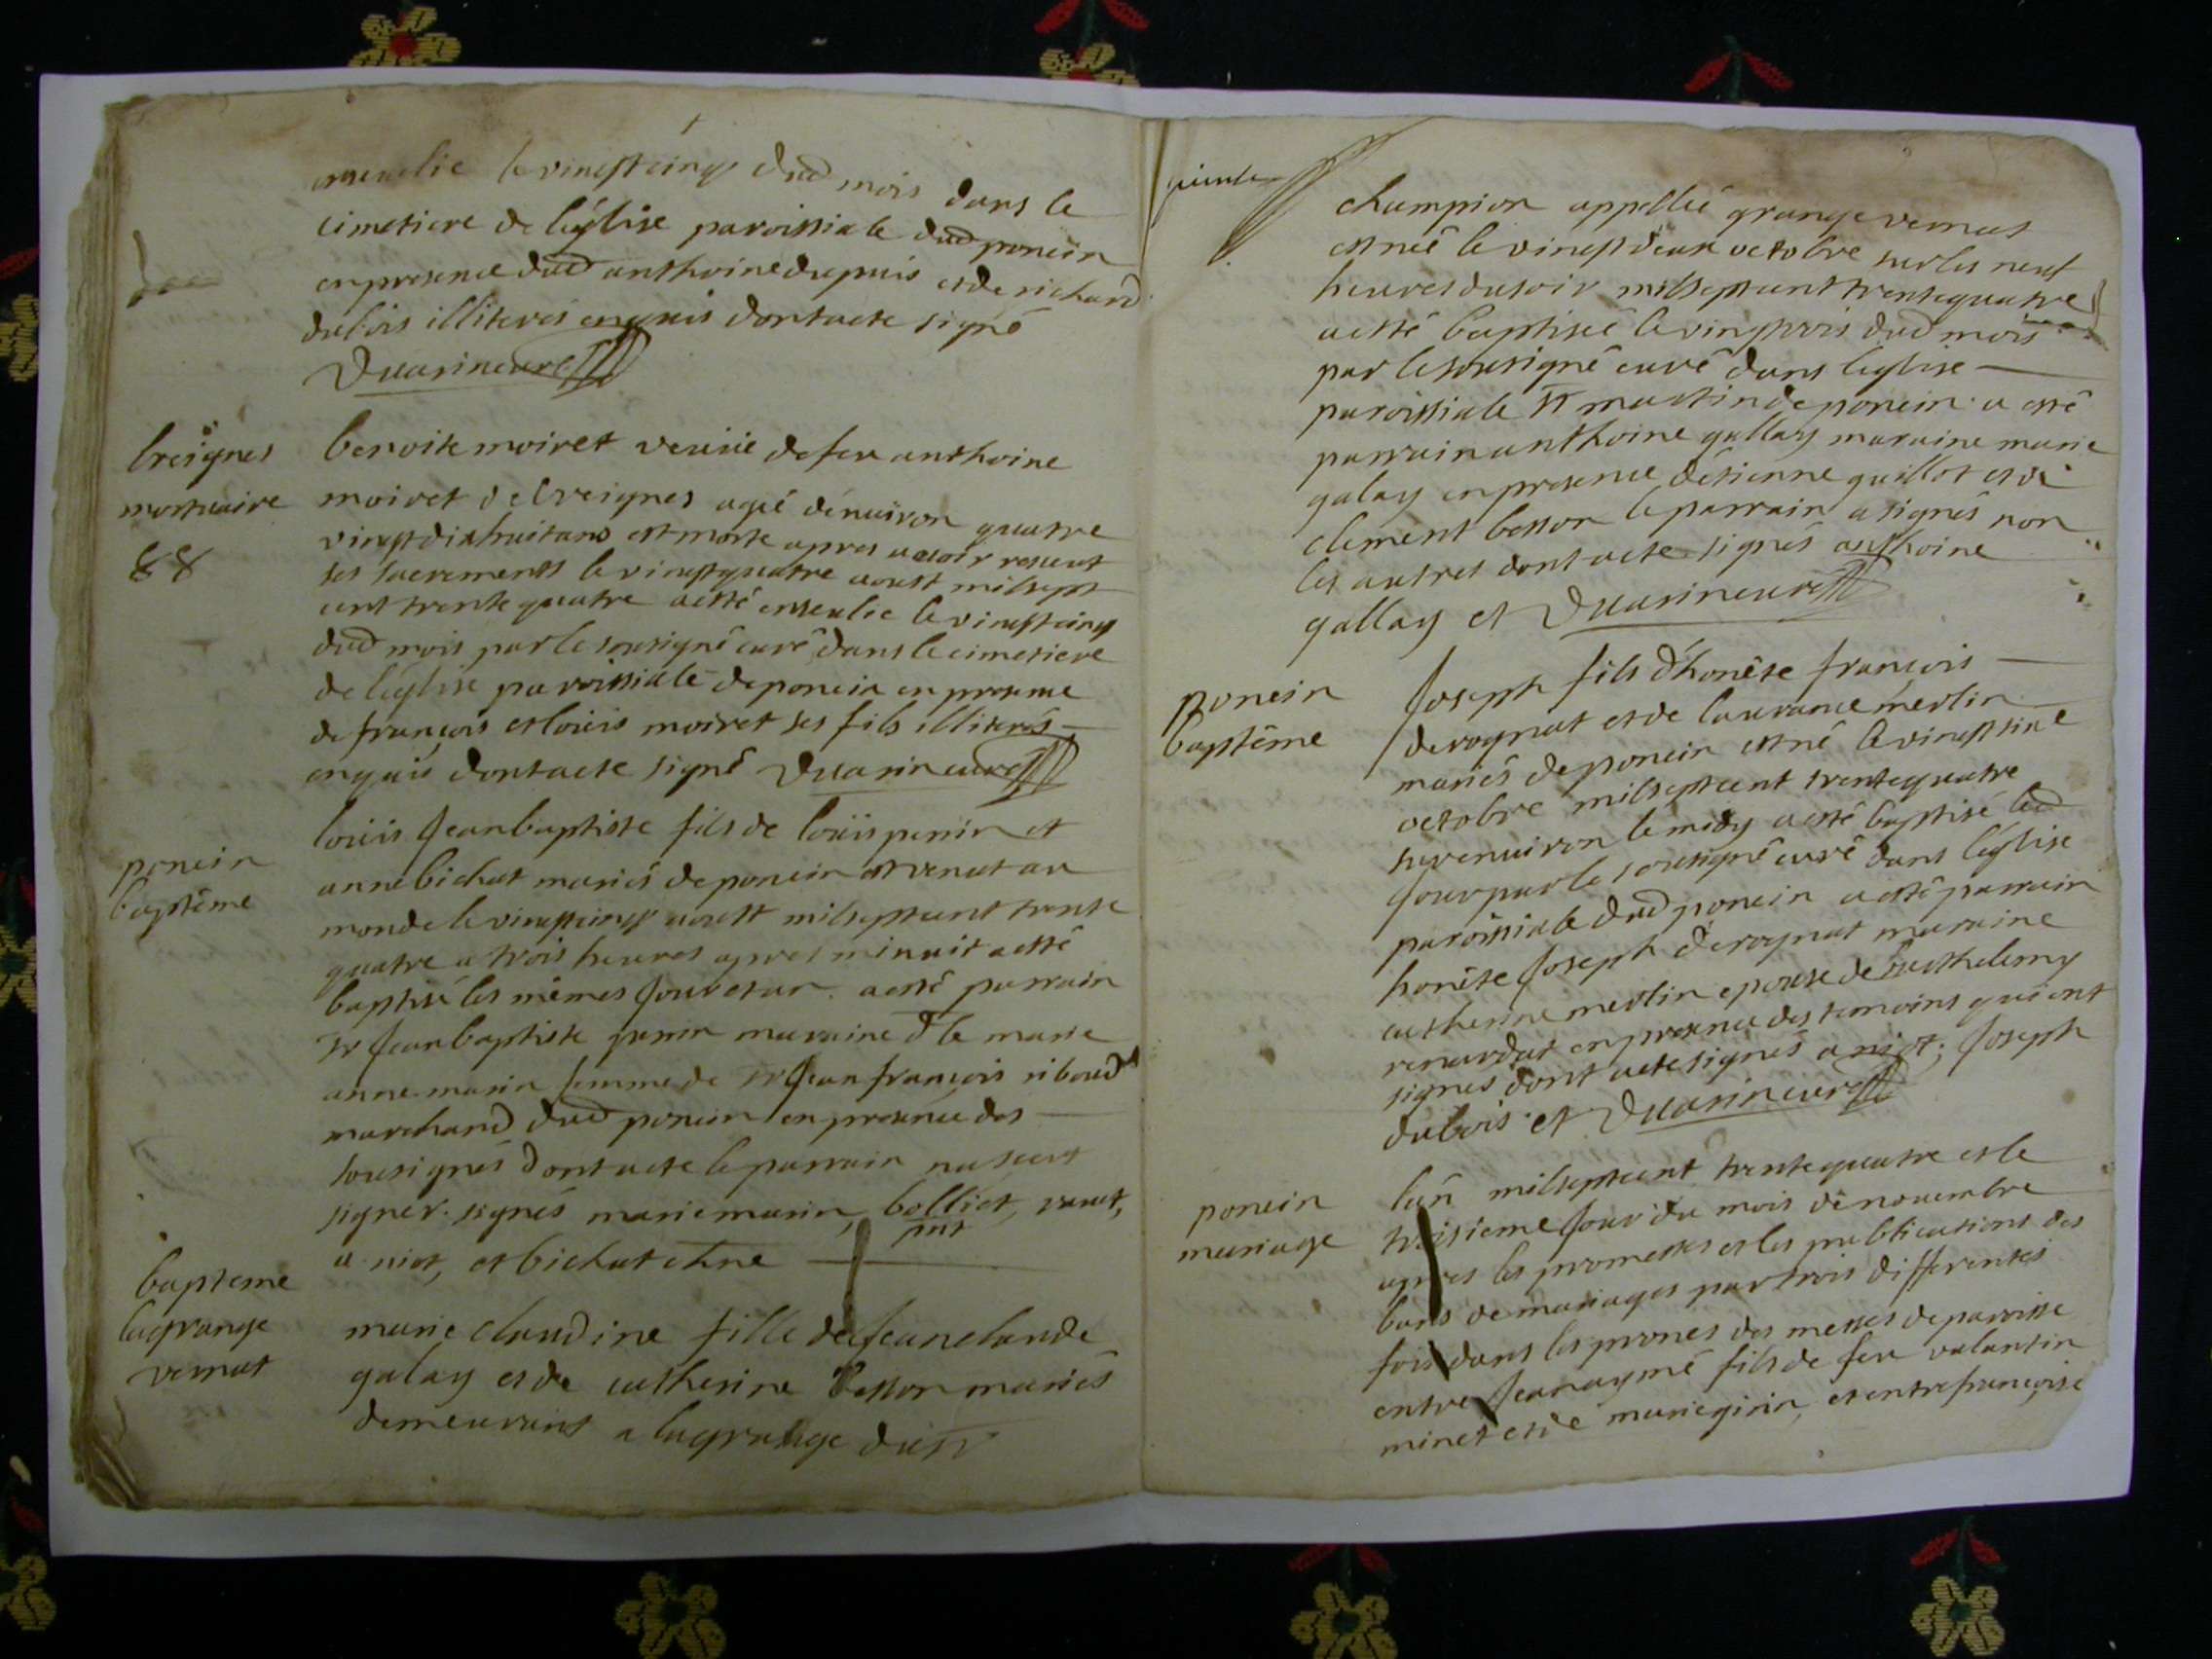 ensevelie le vingtcinq dud mois dans le
cimetiere de léglise paroissiale dud poncin
en presence dud anthoine dupuis et de richard
dubois illiterés enquis dont acte signé
Duarincuré
breignes
mortuaire
88
benoite moiret veuüe de feu anthoine
moiret de breignes agée dénuiron quatre
vingt dix huit ans est morte apres auoir receut
ses sacrements le vingtquatre aoust milsept
cent trente quatre a esté enseulie le vingtcinq
dud mois par le sousigné curé dans le cimetiere
de léglise paroissiale de poncin en presence
de françois et loüis moiret ses fils illiterés
enquis dont acte signé Duarin curé
poncin
baptême
loüis Jeanbaptiste fils de loüis perrin et
anne bichat mariés de poncin est venut au
monde le vingtcinq aoust milseptcent trente
quatre a trois heures apres minuit a esté
baptisé les mêmes Jour et an. a esté parrain
sr Jeanbaptiste maraine dlle marie
anne marin femme de sr Jean françois riboud
marchand dud poncin en presence des
sousignés dont acte le parrain na sceut
signer. signés marie marin, bolliet,
pnt
a. niot, et bichat
bapteme
lagrange
vernat
marie claudine fille de Jeanclaude
galay et de catherine besson mariés
demeurants a lagrange du sr
champion appellée grange vernat
est née le vingtdeux octobre sur les neuf
heures du soir milseptcent trentequatre
a esté baptisée le vingtrois dud mois
par le sousigné curé dans léglise
paroissiale st martin de poncin. a esté
parrain anthoine gallay maraine marie
galay en presence détienne guillot et de
clement besson le parrain a signés non
les autres dont acte signés anthoine
gallay et Duarin curé
poncin
baptême
Joseph fils d'honête françois
derognat et de laurance merlin
mariés de poncin est né le vingtsixe
octobre milseptcent trentequatre
sur enuiron le midy a esté baptisé led
Jour par le sousigné curé dans léglise
paroissiale dud poncin a esté parrain
honête Joseph derognat maraine
catherine merlin epouse de barthelemy
renardat en presence des temoins qui ont
signés dont acte signés a niot, Joseph
dubois et Duarin curé
poncin
mariage
lan milseptcent trentequatre et le
troisieme Jour du mois de nouembre
apres les promesses et les publications des
bans de mariages par trois differentes
fois dans les prones des messes de paroisse
entre Jean aymé fils de feu valantin
minet et de marie girin, et entre françoise